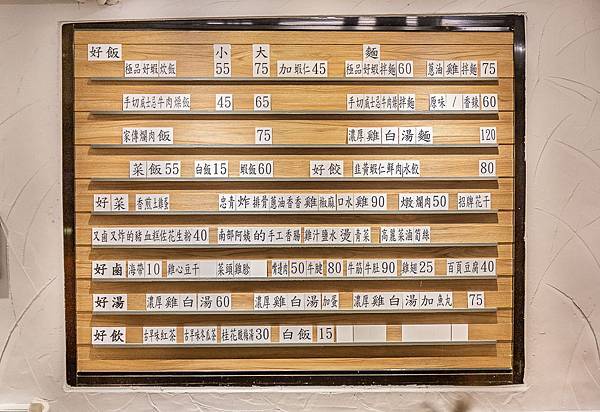 好飯 小 大 麵
極品好蝦炊飯 55 75 加蝦仁45 極品好蝦拌麵60 蔥油雞拌麵75
手切威士忌牛肉燥飯 45 65 手切威士忌牛肉燥拌麵 原味/香辣60
家傳爌肉飯 75 濃厚雞白湯麵 120
菜飯55 白飯15 蝦飯60 好餃 韭黃蝦仁鮮肉水餃 80
好菜 香煎土雞蛋 忠青炸排骨蔥油香香雞椒麻口水雞90 燉爌肉50 招牌花干
又鹵又炸的豬血粄佐花生粉40 南部阿姨的手工香腸 雞汁鹽水燙青菜 高麗菜滷筍絲
好鹵 海帶10 雞心豆干 菜頭雞胗 嘴邊肉50 牛腱80 牛筋牛肚90 雞翅25 百頁豆腐40
好湯 濃厚雞白湯60 濃厚雞白湯加蛋 濃厚雞白湯加魚丸 75
好飲 古早味紅茶 古早味冬瓜茶 桂花酸梅湯30 白飯15